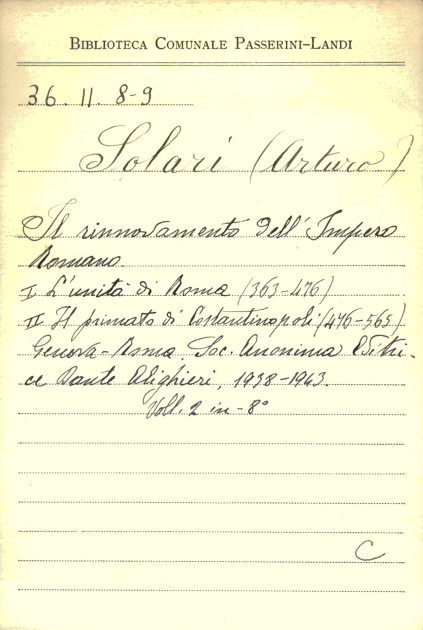 BIBLIOTECA COMUNALE PASSERINI-LANDI
36. II. 8-9
Solari (Arturo)
Il rinnovamento dell'Impero
Romano.
I L'unità di Roma (363-476)
II Il primato di Costantinopoli (476-565).
Genova-Roma Soc. Anonima Editri-
ce Dante Alighieri, 1938-1943.
Voll. 2 in-8°
C